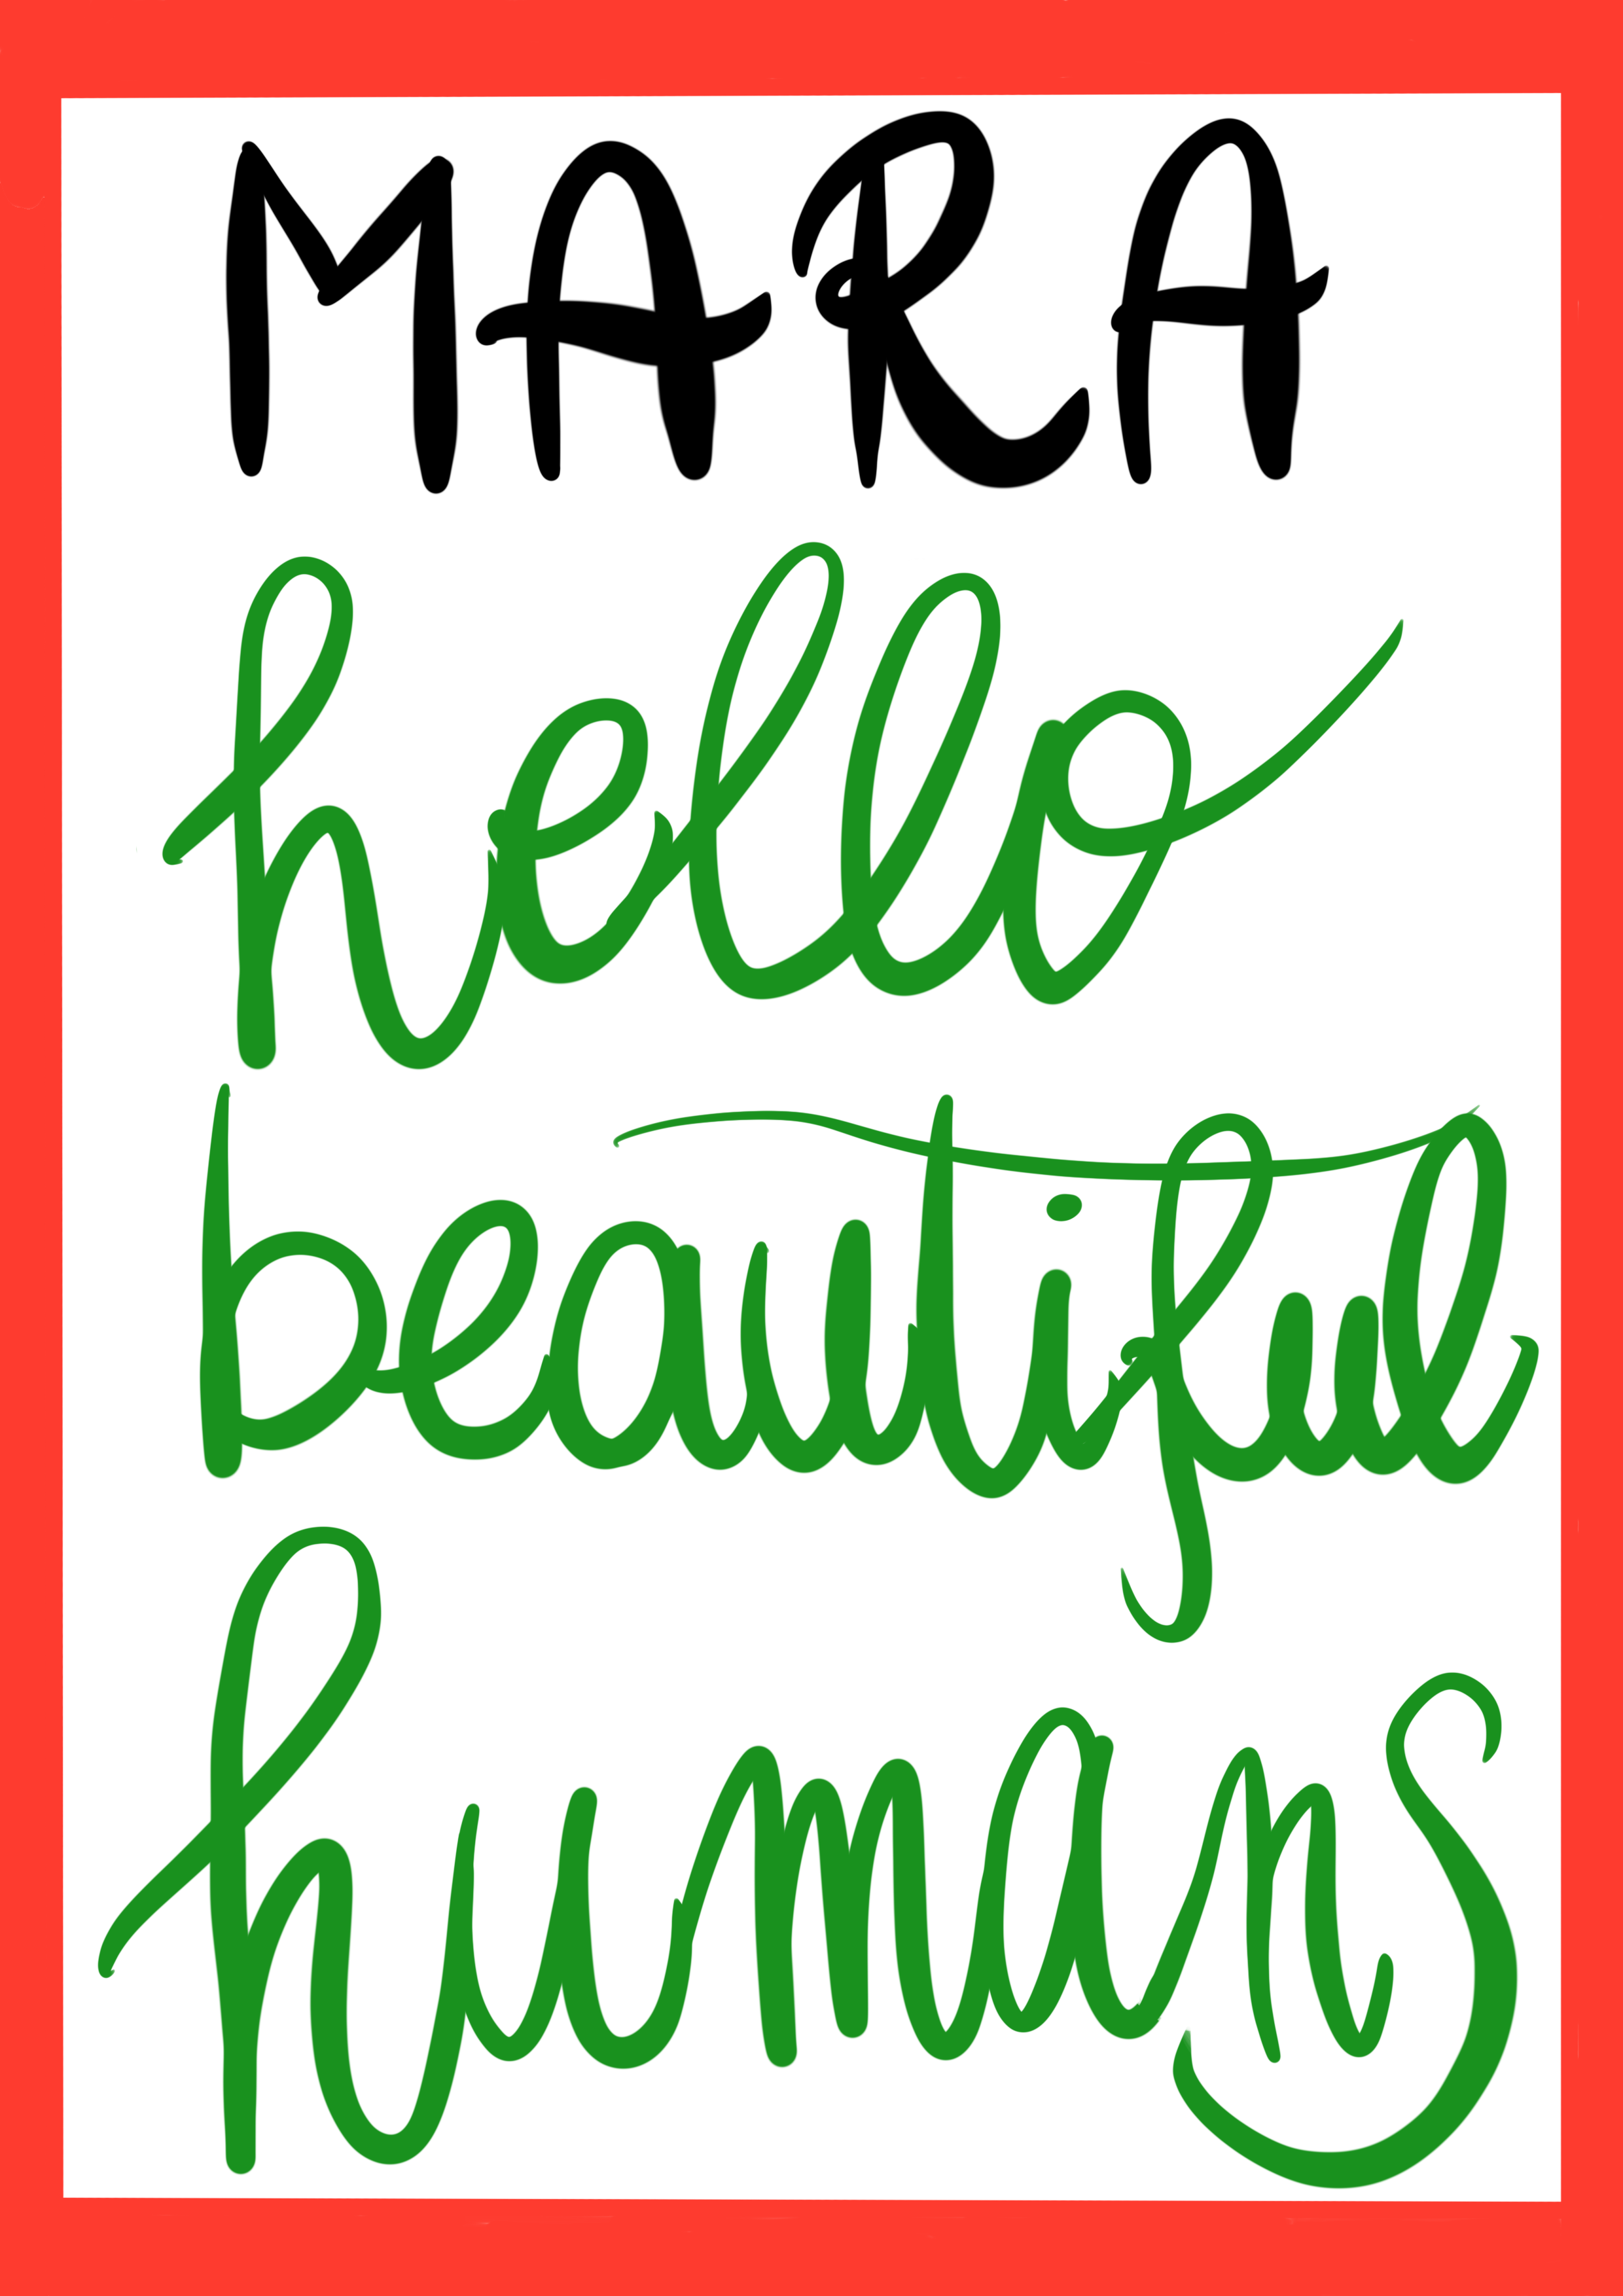 MARA
hello
beautiful
humans